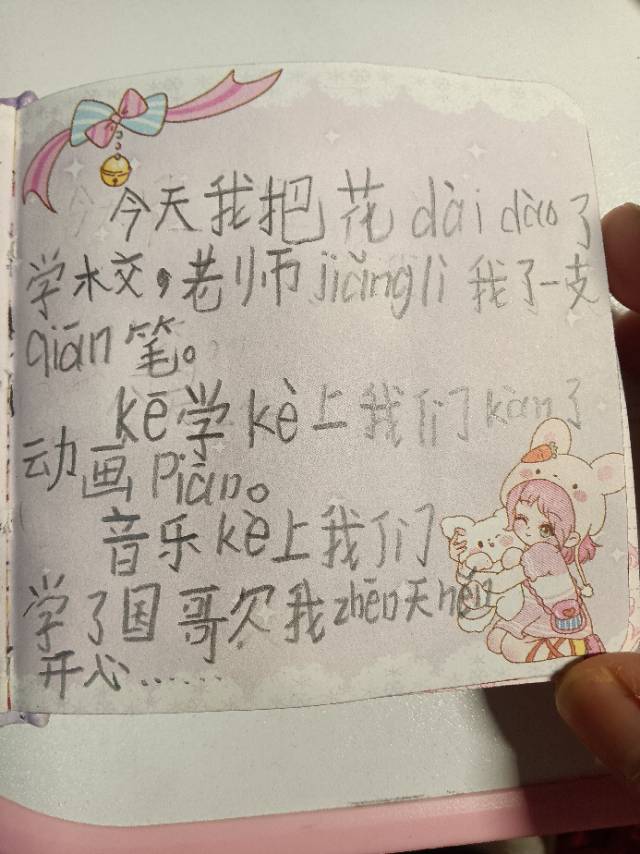 今天我把花dài dào了
学木交，老师jiǎnglì我了一支
qiān笔。
kē学kè上我们kàn了
动画piàn。
音乐kè上我们
学了国哥欠我zhēn天hén
开心……